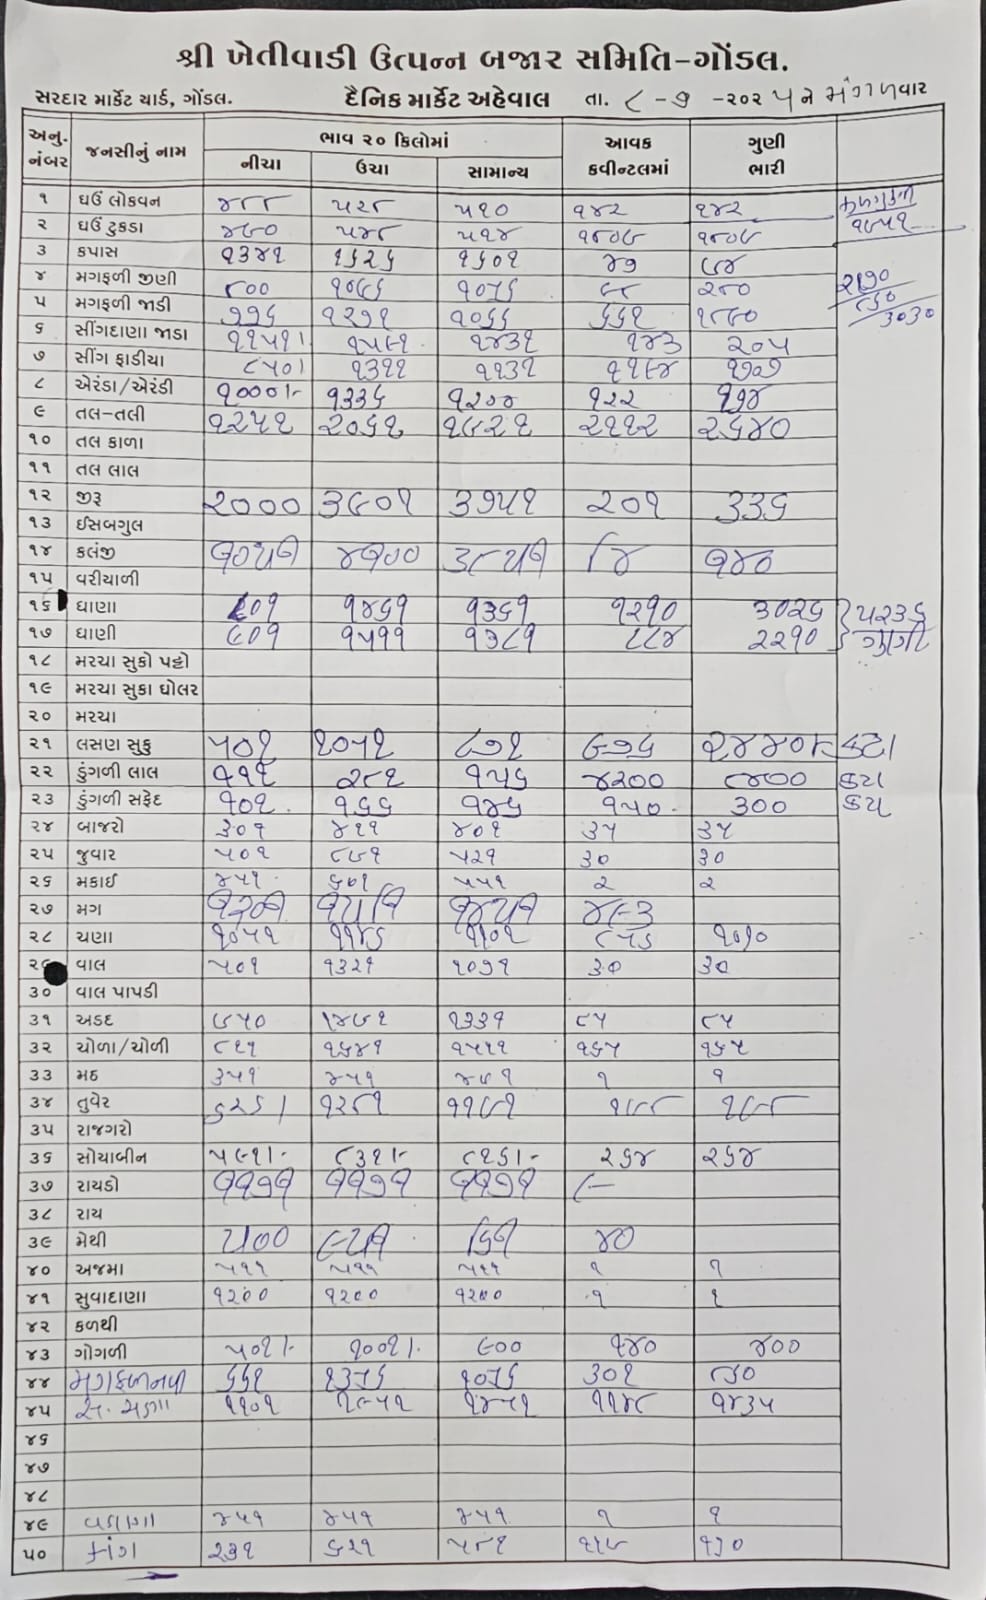 શ્રી ખેતીવાડી ઉત્પન્ન બજાર સમિતિ-ગોંડલ.
સરદાર માર્કેટ યાર્ડ, ગોંડલ. દૈનિક માર્કેટ અહેવાલ તા. ૮-૭-૨૦૨૫ ને મંગળવાર
અનુ. નંબર જનસીનું નામ ભાવ ૨૦ કિલોમાં આવક કવીન્ટલમાં ગુણી ભારી
નીચા ઉંચા સામાન્ય
૧ ઘઉં લોકવન ૪૮૮ ૫૨૮ ૫૧૦ ૧૪૨ ૧૪૨
૨ ઘઉં ટુકડા ૫૪૮ ૫૧૪
૩ કપાસ ૧૩૪૧ ૧૬૨૬ ૧૬૦૧ ૪૭ ૯૪
૪ મગફળી જીણી ૮૦૦ ૧૦૭૬ ૨૮૦ ૨૧૭૦
૫ મગફળી જાડી ૭૧૬ ૧૨૭૧ ૧૦૬૬ ૬૬૧ ૮૬૦
૬ સીંગદાણા જાડા ૧૧૫૧ ૧૪૩૧ ૧૪૩ ૨૦૫ ૩૦૩૦
૭ સીંગ ફાડીયા ૮૫૦ ૧૩૧૧ ૧૧૩૧ ૧૧૯૪
૮ એરંડા/એરંડી ૧૦૦૦/- ૧૩૩૬ ૧૨૦૪ ૧૨૨ ૧૭૪
૯ તલ-તલી ૧૨૫૧ ૨૦૬૧ ૧૯૨૧ ૨૧૧૨ ૨૬૪૦
૧૦ તલ કાળા
૧૧ તલ લાલ
૧૨ જીરૂ ૨૦૦૦ ૩૯૦૧ ૩૭૫૧ ૨૦૧ ૩૩૬
૧૩ ઈસબગુલ
૧૪ કલંજી ૧૦૫૧ ૪૧૦૦ ૩૮૫૧ ૧૪૦
૧૫ વરીયાળી
૧૬ ધાણા ૮૦૧ ૧૪૬૧ ૧૩૬૧ ૧૨૧૦ ૩૦૨૬ ૫૨૩૬
૧૭ ધાણી ૯૦૧ ૧૫૧૧ ૧૩૮૧ ૮૮૪ ૨૨૧૦ ગુણી
૧૮ મરચા સુકો પટ્ટો
૧૯ મરચા સુકા ઘોલર
૨૦ મરચા
૨૧ લસણ સુકુ ૫૦૧ ૧૦૫૧ ૮૭૧ ૯૭૬ ૨૪૪૦ કટા
૨૨ ડુંગળી લાલ ૧૧૧ ૨૮૧ ૧૫૬ ૪૨૦૦ ૮૪૦૦ કટા
૨૩ ડુંગળી સફેદ ૧૦૧ ૧૬૬ ૧૪૬ ૧૫૦ ૩૦૦ કટા
૨૪ બાજરો ૩૦૧ ૪૧૧ ૪૦૧ ૩૫ ૩૫
૨૫ જુવાર ૫૦૧ ૫૨૧ ૩૦ ૩૦
૨૬ મકાઈ ૪૫૧ ૬૦૧ ૫૫૧ ૨ ૨
૨૭ મગ ૧૪૫૧ ૪૯૩
૨૮ ચણા ૧૦૫૧ ૧૧૪૬ ૧૧૦૧ ૮૫૬
૨૯ વાલ ૫૦૧ ૧૩૨૧ ૧૦૭૧ ૩૦ ૩૦
૩૦ વાલ પાપડી
૩૧ અડદ ૧૩૩૧ ૮૫ ૮૫
૩૨ ચોળા/ચોળી ૮૧૧ ૧૬૪૧ ૧૫૧૧ ૧૬૫ ૧૬૫
૩૩ મઠ ૩૫૧ ૪૫૧ ૧ ૧
૩૪ તુવેર ૬૨૬ ૧૨૮૧
૩૫ રાજગરો
૩૬ સોયાબીન ૫૯૧/- ૮૩૧/- ૮૨૬/- ૨૬૪ ૨૬૪
૩૭ રાયડો ૧૧૭૧ ૧૧૭૧ ૧૧૭૧ ૮
૩૮ રાય
૩૯ મેથી ૫૦૦ ૯૫૧ ૮૬૧ ૪૦
૪૦ અજમા ૫૧૧ ૫૧૧ ૫૧૧ ૧ ૧
૪૧ સુવાદાણા ૧૨૦૦ ૧૨૦૦ ૧૨૦૦ ૧ ૧
૪૨ કળથી
૪૩ ગોગળી ૫૦૧/- ૧૦૦૧/- ૯૦૦ ૧૪૦ ૪૦૦
૪૪ ૬૬૧ ૧૩૭૬ ૧૦૭૬ ૩૦૧
૪૫ ૧૧૦૧ ૧૯૫૧ ૧૪૫૧ ૧૧૪૮ ૧૪૩૫
૪૬
૪૭
૪૮
૪૯ વટાણા ૪૫૧ ૪૫૧ ૪૫૧ ૧ ૧
૫૦ ૨૩૧ ૬૨૧ ૫૮૧